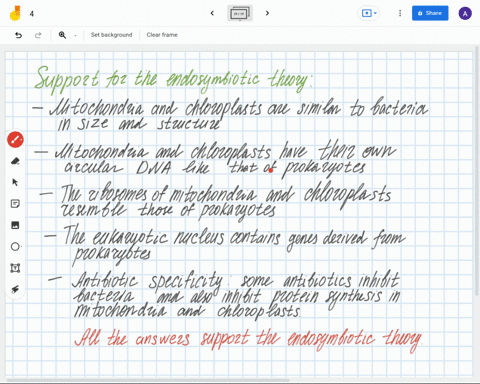 4
Share
A
Set background
Clear frame
Support for the endosymbiotic theory:
— Mitochondria and chloroplasts are similar to bacteria
in size and structure
— Mitochondria and chloroplasts have their own
circular DNA like that of prokaryotes
— The ribosomes of mitochondria and chloroplasts
resemble those of prokaryotes
— The eukaryotic nucleus contains genes derived from
prokaryotes
— Antibiotic specificity: some antibiotics inhibit
bacteria and also inhibit protein synthesis in
mitochondria and chloroplasts
All the answers support the endosymbiotic theory.